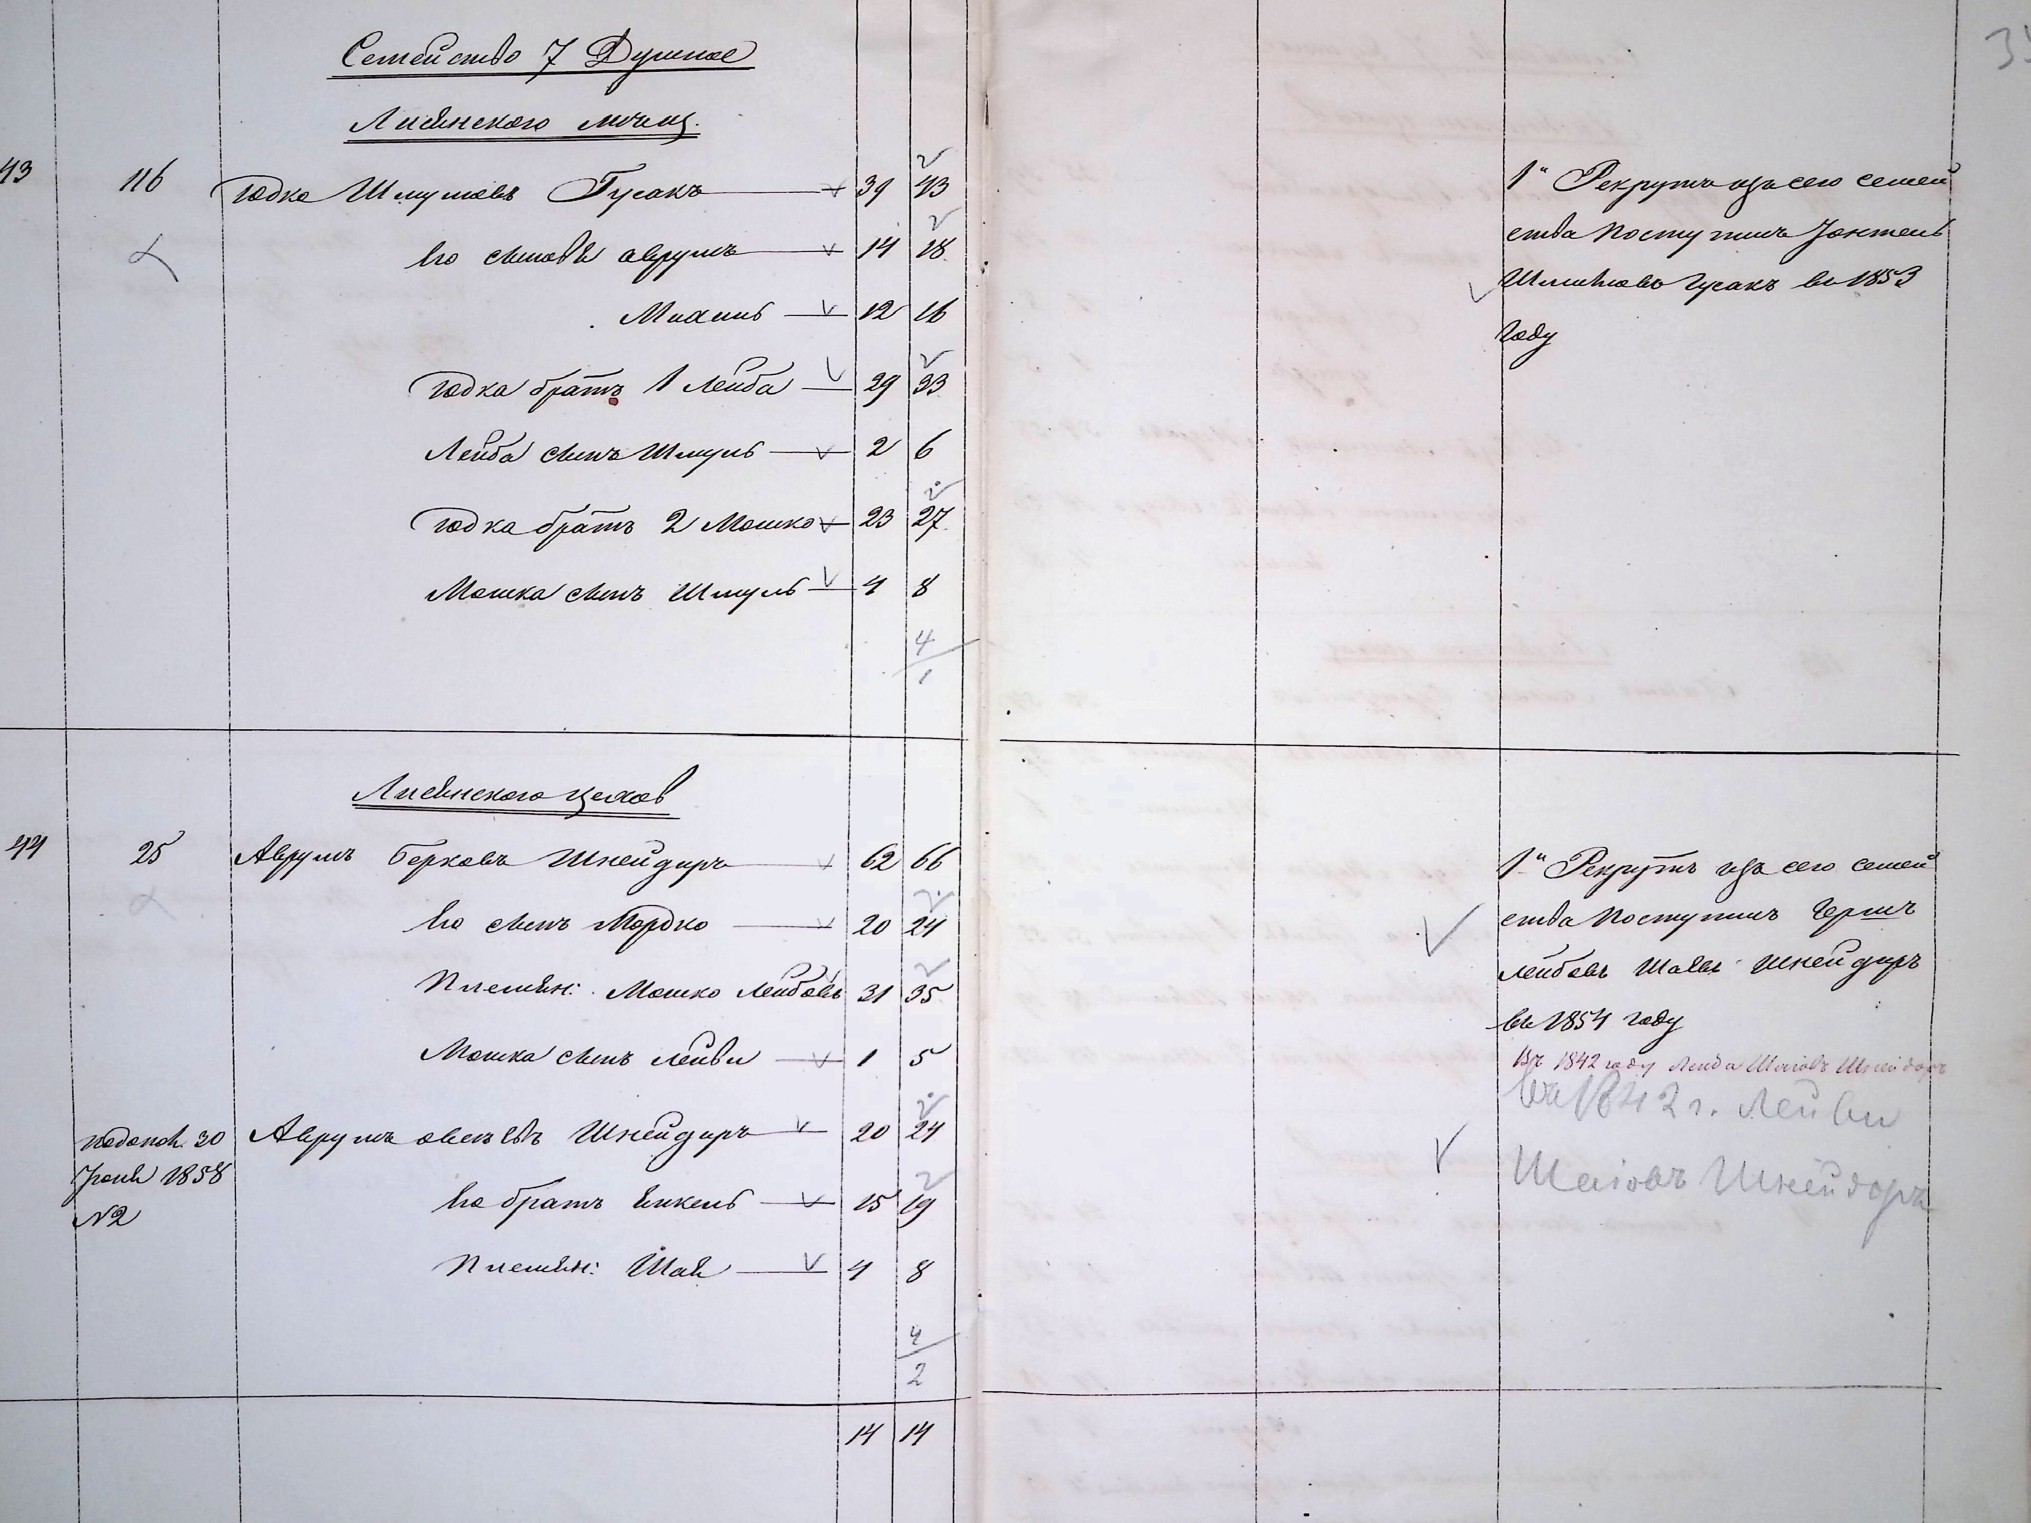 Семейство 7 Душное
Лисянского мещ.
43 116 Іодко Шмулевъ Гусакъ 39 43
Его сыновья Аврумъ 14 18
Михель 12 16
Іодка братъ 1 Лейба 29 33
Лейба сынъ Шмуль 2 6
Іодка братъ 2 Мошко 23 27
Мошка сынъ Шмуль 4 8
4
1
1й Рекрутъ изъ сего семей
ства поступилъ Іонтель
Шмулевъ Гусакъ въ 1853
году
Лисянского цехов
44 25 Аврумъ Берковъ Шнейдиръ 62 66
Его сынъ Мордко 20 24
Племян: Мошко Лейбовъ 31 35
Мошка сынъ Лейви 1 5
пополн. 30 Аврумъ Овсѣевъ Шнейдиръ 20 24
Іюня 1858
№2
Его братъ Янкель 15 19
Племян: Шая 4 8
4
2
1й Рекрутъ изъ сего семей
ства поступилъ Герш
Лейбовъ Шаевъ Шнейдиръ
въ 1854 году
Въ 1842 году Лейба Шаіовъ Шнейдоръ
въ 1842 г. Лейви
Шаіовъ Шнейдоръ
14 14